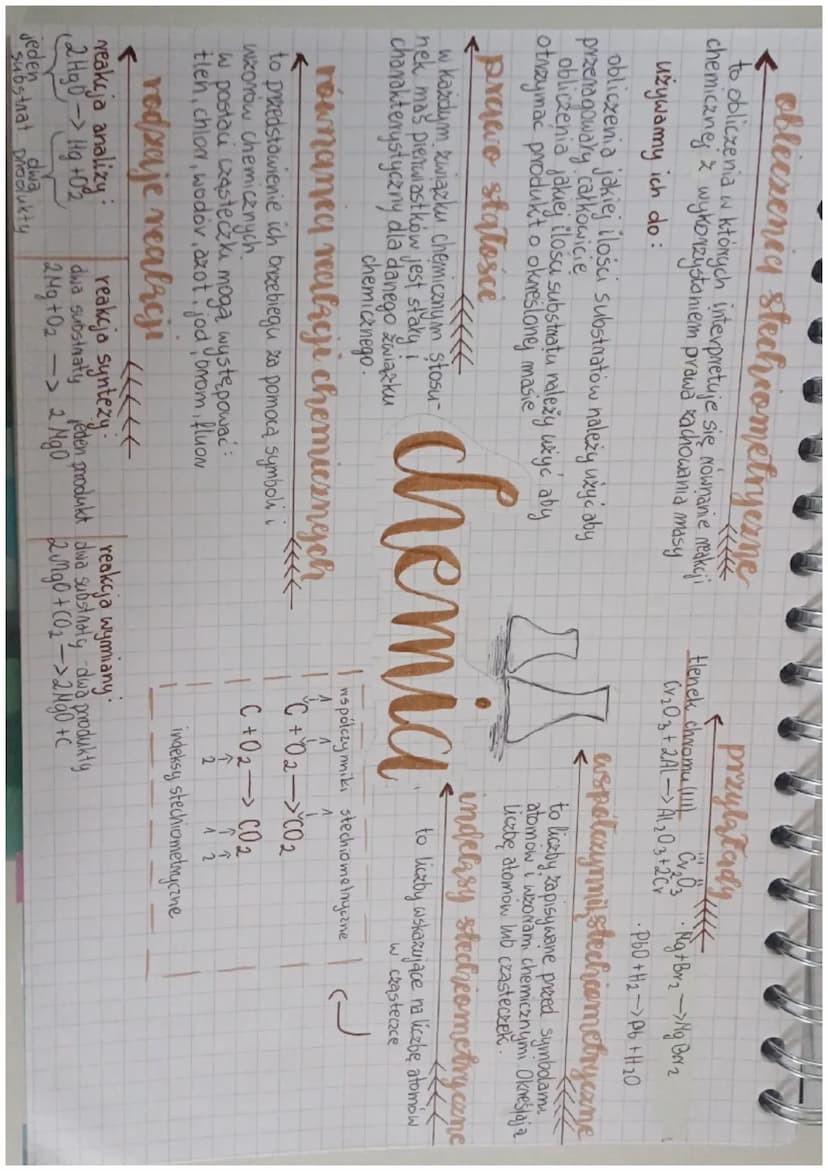 obliczenia stechiometryczne
to obliczenia w których interpretuje się równanie reakcji
chemicznej z wykorzystaniem prawa zachowania masy
używamy ich do:
obliczenia jakiej ilości substratów należy użyć aby
przereagowały całkowicie
obliczenia jakiej ilości substratu należy użyć aby
otrzymać produkt o określonej masie
prawo stałości
w każdym związku chemicznym stosu-
nek mas pierwiastków jest stały i
charakterystyczny dla danego związku
chemicznego.
równania reakcji chemicznych
to przedstawienie ich przebiegu za pomocą symboli i
wzorów chemicznych
w postaci cząsteczki mogą występować:
tlen, chlor, wodór, azot, jod, brom, fluor
rodzaje reakcji
reakcja analizy:
2HgO -> Hg + O2
jeden dwa
substrat produkty
reakcja syntezy:
dwa substraty jeden produkt
2Mg + O2 -> 2MgO
reakcja wymiany:
dwa substraty - dwa produkty
2MgO + CO2 -> 2MgO + C
chemia
przykłady
tlenek chromu (III) Cr2O3
III II
Cr2O3 + 2Al -> Al2O3 + 2Cr
· Mg + Br2 -> MgBr2
· PbO + H2 -> Pb + H2O
współczynniki stechiometryczne
to liczby zapisywane przed symbolami
atomów i wzorami chemicznymi. Określają
liczbę atomów lub cząsteczek.
indeksy stechiometryczne
to liczby wskazujące na liczbę atomów
w cząsteczce
współczynniki stechiometryczne
1 1 1
C + O2 -> CO2
C + O2 -> CO2
2 1 2
indeksy stechiometryczne